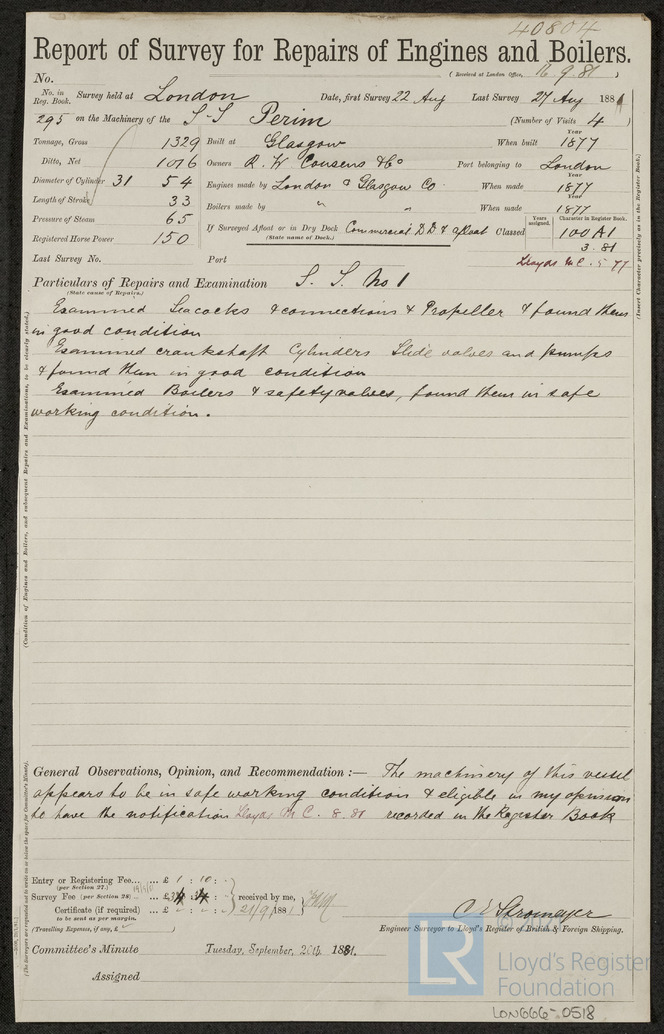 40804
Report of Survey for Repairs of Engines and Boilers.
No. (Received at London Office, 16.9.81)
No. in Reg. Book. Survey held at London Date, first Survey 22 Aug Last Survey 27 Aug 1881
295 on the Machinery of the S.S Perim (Number of Visits 4)
Tonnage, Gross 1329 Built at Glasgow When built Year 1877
Ditto, Net 1016 Owners R. W. Cousens & Co Port belonging to London
Diameter of Cylinder 31 54 Engines made by London & Glasgow Co When made Year 1877
Length of Stroke 33 Boilers made by " " When made Year 1877
Pressure of Steam 65 If Surveyed Afloat or in Dry Dock Commercial D.D & afloat Classed Years assigned. Character in Register Book. 100 A1
(State name of Dock.)
Registered Horse Power 150 3.81
Last Survey No. Port Lloyds M C. 5 77
Particulars of Repairs and Examination S. S. No 1
(State cause of Repairs.)
Examined Seacocks & connections & Propeller & found them
in good condition
Examined crankshaft Cylinders Slide valves and pumps
& found them in good condition
Examined Boilers & safety valves, found them in safe
working condition.
(Insert Character precisely as in the Register Book.)
(Condition of Engines and Boilers, and subsequent Repairs and Examinations, to be clearly stated.)
General Observations, Opinion, and Recommendation :— The machinery of this vessel
appears to be in safe working condition & eligible in my opinion
to have the notification Lloyds M C. 8.81 recorded in the Register Book
(The Surveyors are requested not to write on or below the space for Committee's Minute.)
Entry or Registering Fee... ... £ 1 : 10 : -
(per Section 27.)
Survey Fee (per Section 28) .. ... £ received by me,
Certificate (if required) ... £ 21/9/1881
to be sent as per margin.
(Travelling Expenses, if any, £ )
C E Stromeyer
Engineer Surveyor to Lloyd's Register of British & Foreign Shipping.
Committee's Minute Tuesday, September, 20th 1881.
Assigned
LR
Lloyd's Register
Foundation
LON666-0518